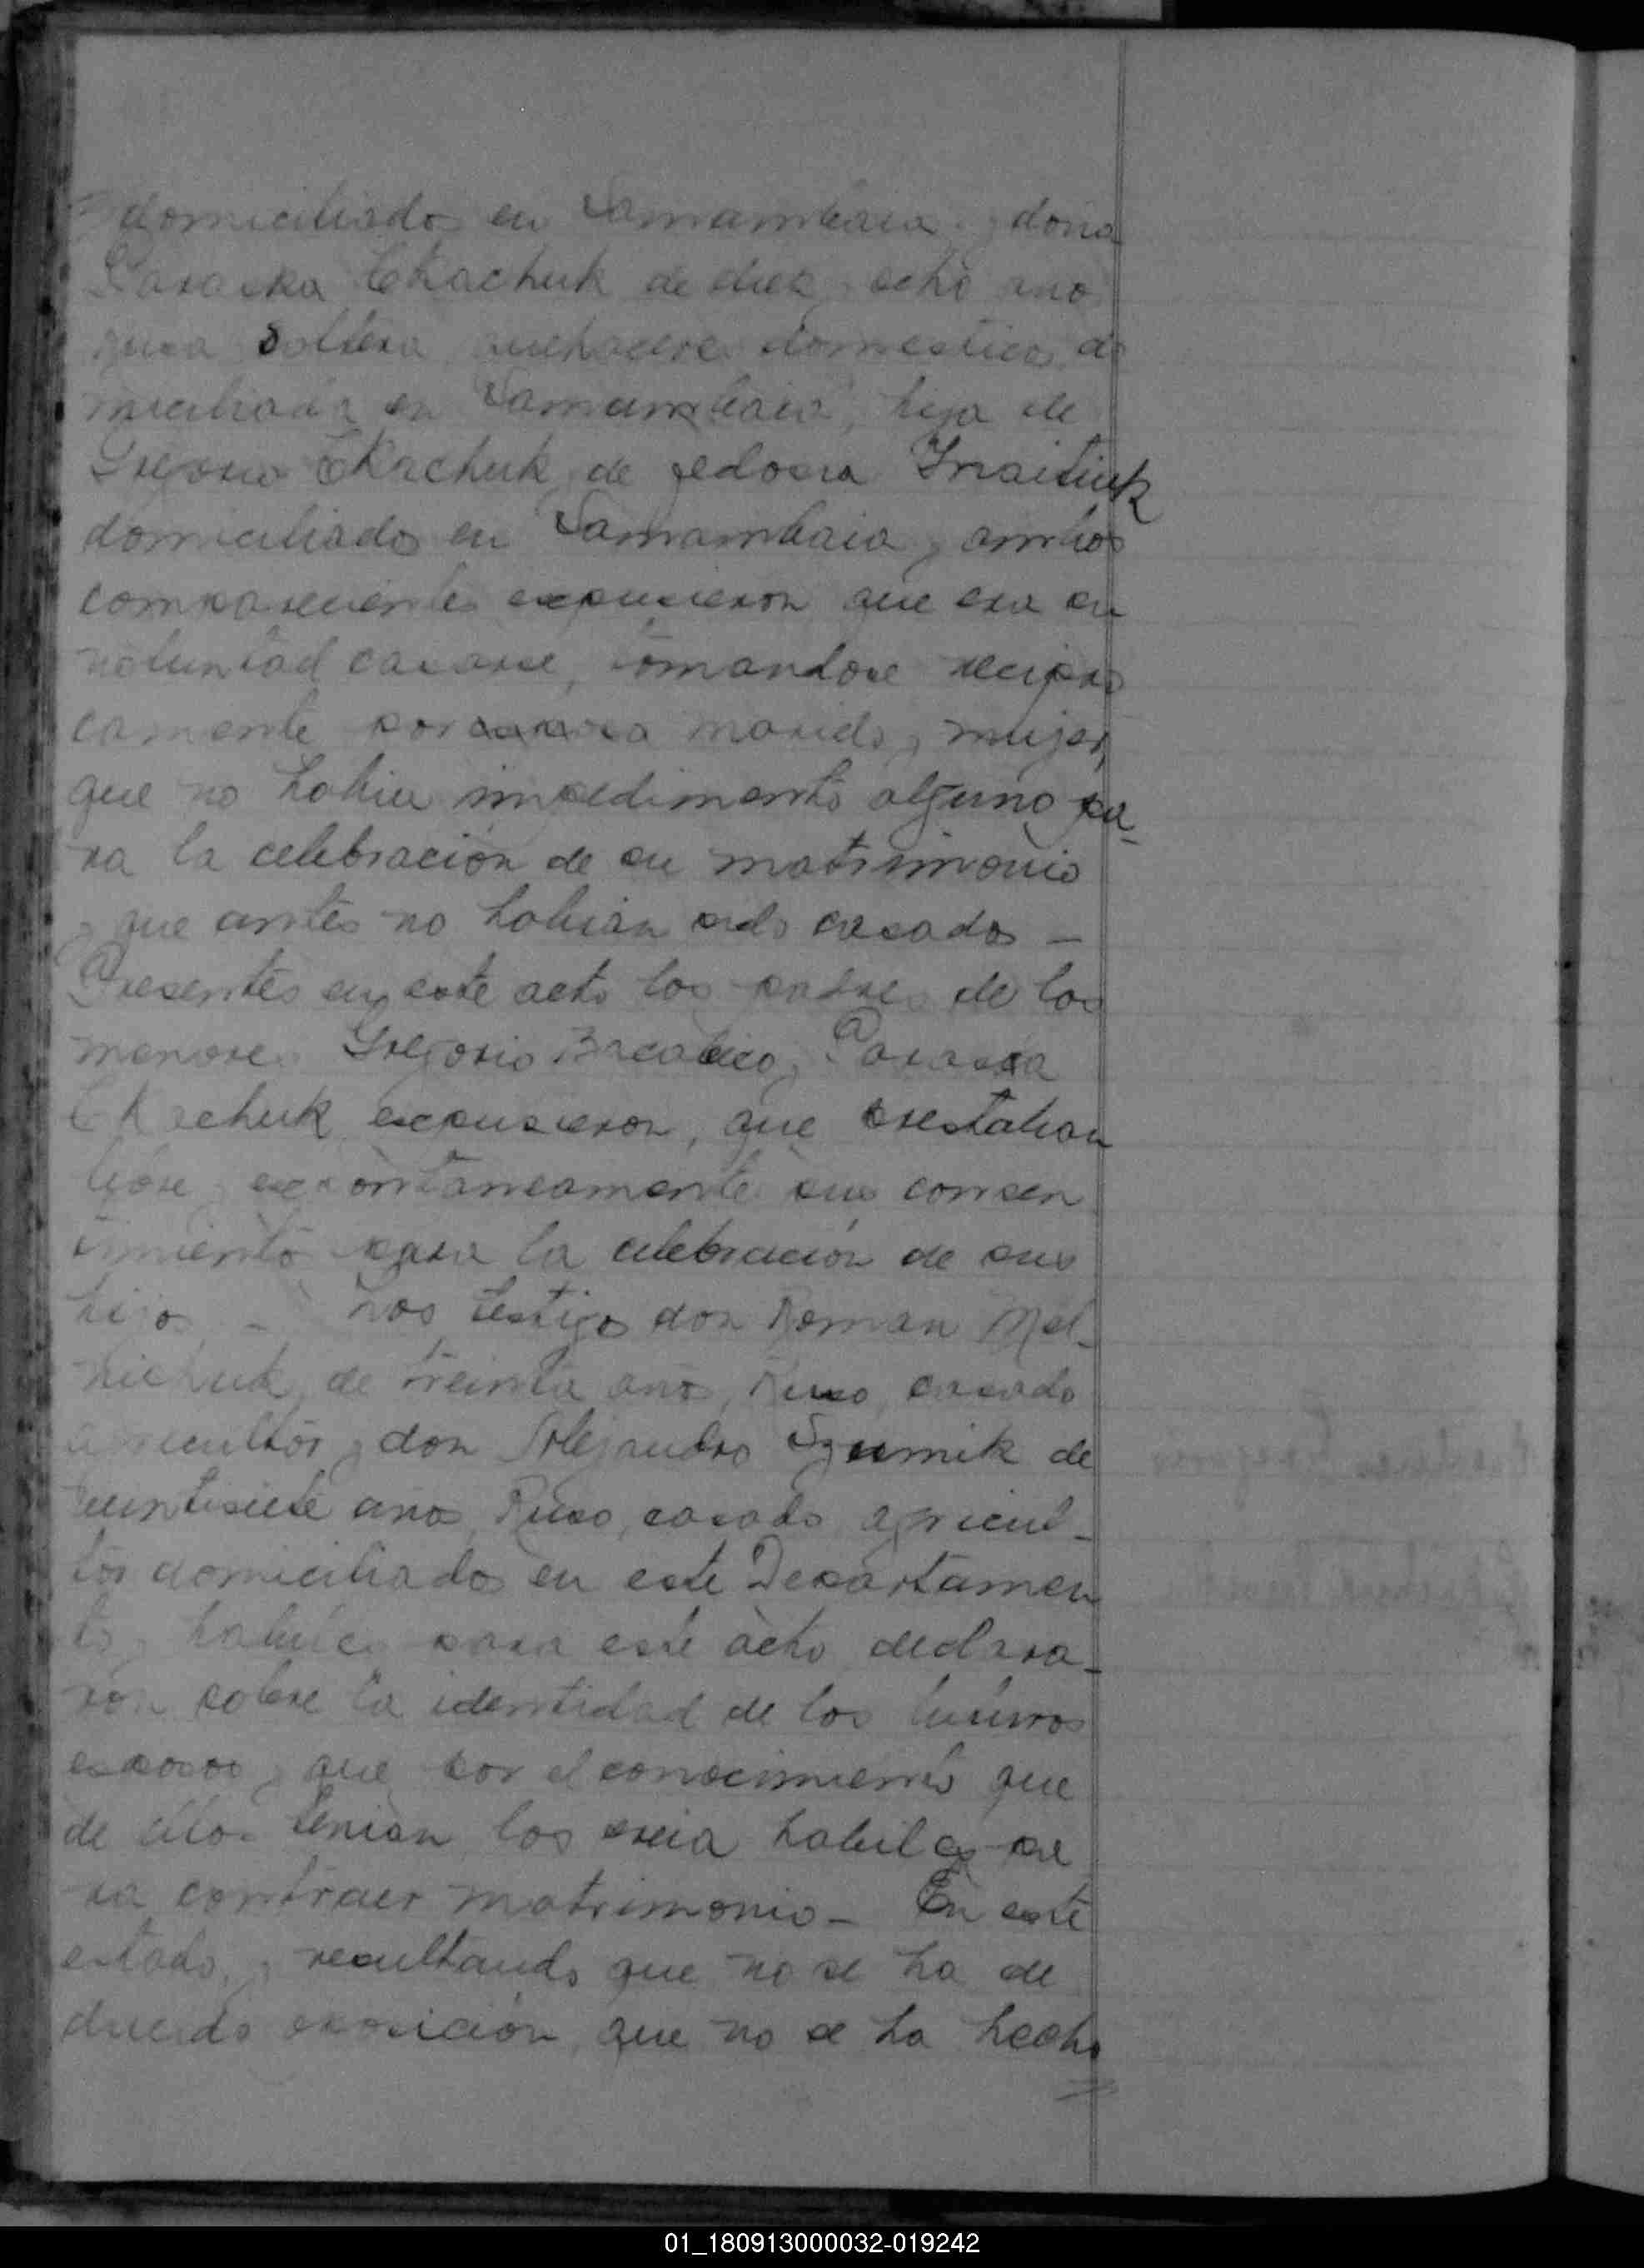 domiciliados en Samambaia y doña
Paraska Ckachuk de diez y ocho años
rusa soltera quehaceres domesticos do
miciliada en Samambaia, hija de
Gregorio Ckachuk y de Fedosia
domiciliados en Samambaia y ambos
comparecientes expusieron que era su
voluntad casarse, tomandose recipro
camente por marido y mujer,
que no habia impedimento alguno pa-
ra la celebración de su matrimonio
y que antes no habian sido casados —
Presentes en este acto los padres de los
menores Gregorio y Paraska
Ckachuk expusieron, que prestaban
libre y expontaneamente sus consen
timiento para la celebración de sus
hijos — Los testigos don Roman Mel-
nichuk de treinta años, Ruso, casado
agricultor y don Alejandro Szumik de
veintisiete años, Ruso, casado, agricul-
tor domiciliados en este Departamen
to y habiles para este acto declara-
ron sobre la identidad de los futuros
esposos y que por el conocimiento que
de ellos tenian los creia habiles pa
ra contraer matrimonio — En este
estado, y resultando que no se ha de
ducido oposición, que no se ha hecho
01_180913000032-019242